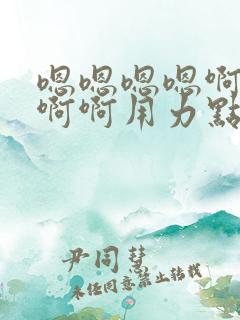 嗯嗯嗯嗯啊
啊啊用力點
尹同彗
未任同意禁止转载